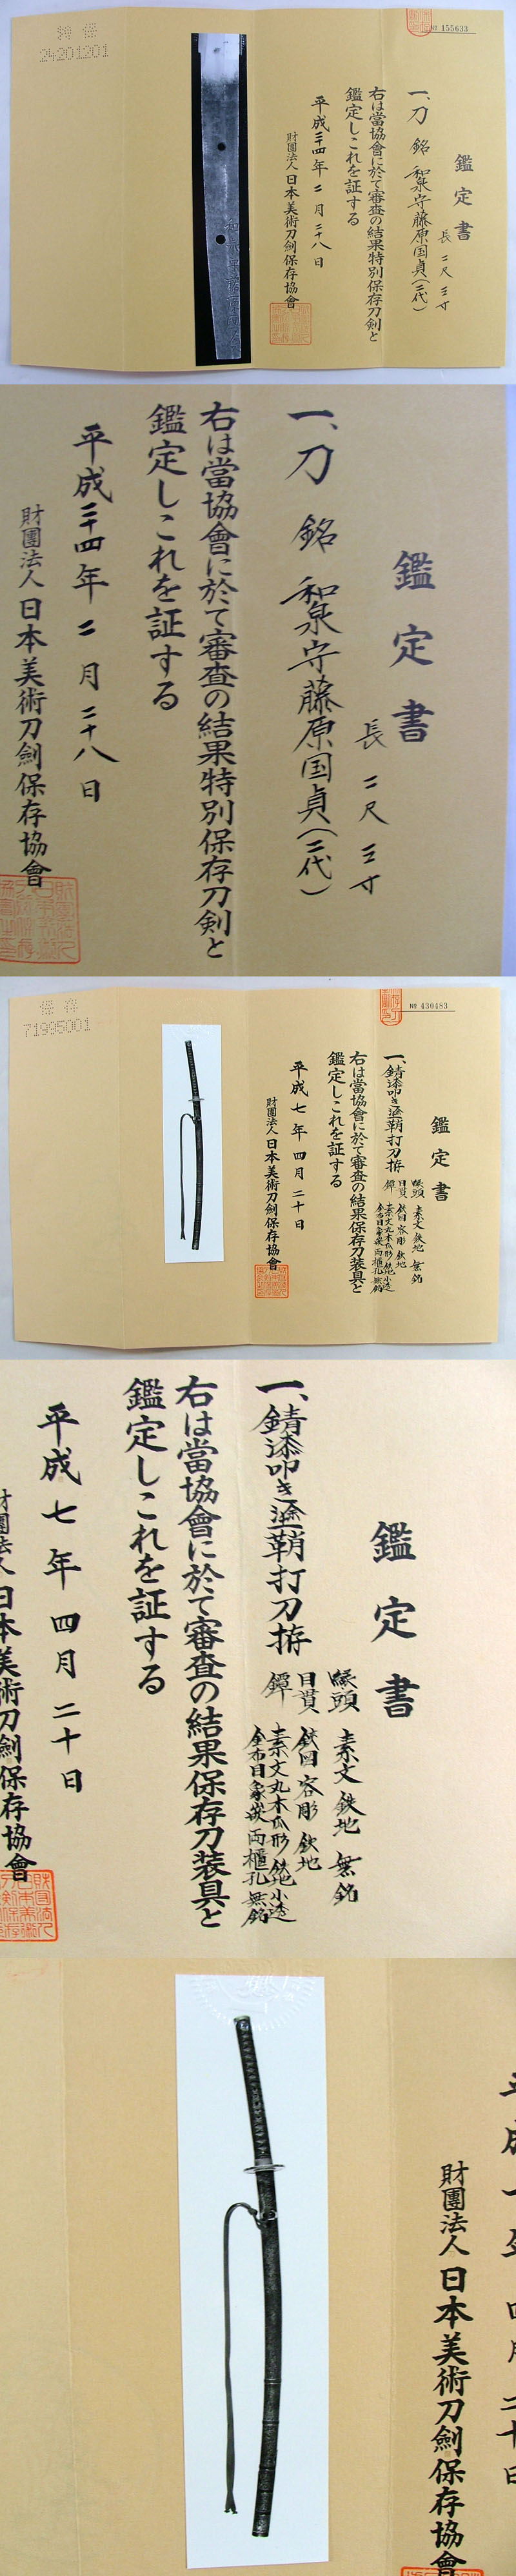 特保
24201201
№ 155633
鑑定書
一、刀 銘 和泉守藤原国貞(二代)
長 二尺三寸
右は當協會に於て審査の結果特別保存刀剣と
鑑定しこれを証する
平成二十四年二月二十八日
財團法人日本美術刀劍保存協會
鑑定書
長 二尺三寸
一、刀 銘 和泉守藤原国貞(二代)
右は當協會に於て審査の結果特別保存刀剣と
鑑定しこれを証する
平成二十四年二月二十八日
財團法人日本美術刀劍保存協會
保存
71995001
№ 430483
鑑定書
一、錆漆叩き塗鞘打刀拵
縁頭 素文 鉄地 無銘
目貫 鉄地
鐔 素文丸木瓜形 鉄地 小透
金布目象嵌 両櫃孔 無銘
右は當協會に於て審査の結果保存刀装具と
鑑定しこれを証する
平成七年四月二十日
財團法人日本美術刀劍保存協會
鑑定書
一、錆漆叩き塗鞘打刀拵
縁頭 素文 鉄地 無銘
目貫 容彫 鉄地
鐔 素文丸木瓜形 鉄地 小透
金布目象嵌 両櫃孔 無銘
右は當協會に於て審査の結果保存刀装具と
鑑定しこれを証する
平成七年四月二十日
財團法人日本美術刀劍保存協會
財團法人日本美術刀劍保存協會